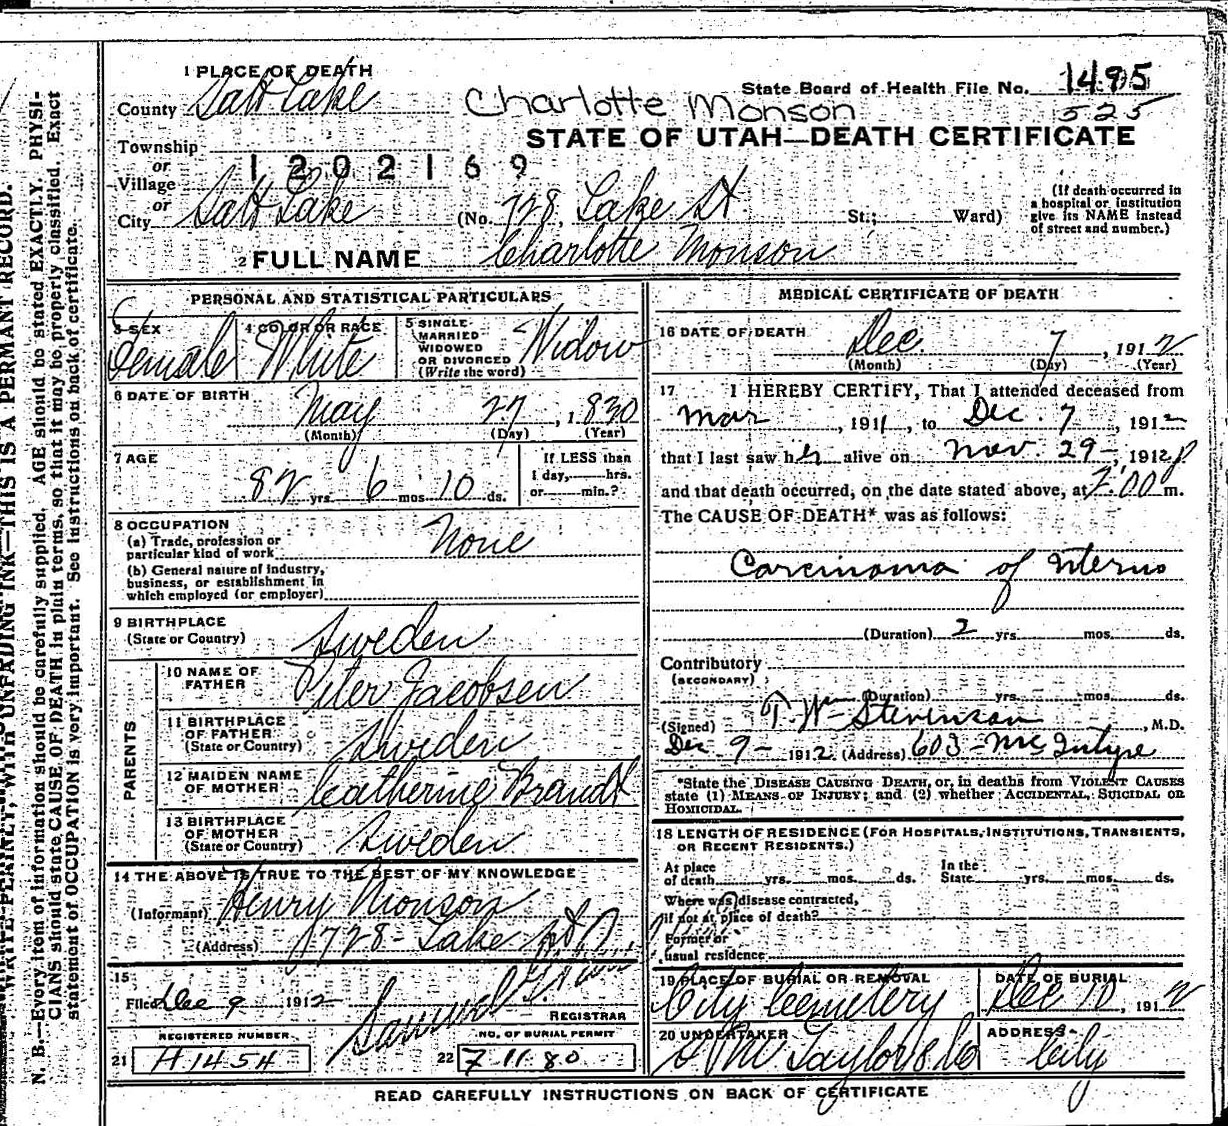 1 PLACE OF DEATH
County Salt Lake
Charlotte Monson
State Board of Health File No. 1495
525
STATE OF UTAH—DEATH CERTIFICATE
Township
or
Village
1202169
or
City Salt Lake (No. 728, Lake St St.; Ward)
(If death occurred in a hospital or institution give its NAME instead of street and number.)
2 FULL NAME Charlotte Monson
PERSONAL AND STATISTICAL PARTICULARS
3 SEX Female
4 COLOR OR RACE White
5 SINGLE, MARRIED WIDOWED OR DIVORCED (Write the word) Widow
6 DATE OF BIRTH May 27, 1830
(Month) (Day) (Year)
7 AGE 82 yrs. 6 mos. 10 ds.
If LESS than 1 day, hrs. or min.?
8 OCCUPATION
(a) Trade, profession or particular kind of work None
(b) General nature of industry, business, or establishment in which employed (or employer)
9 BIRTHPLACE
(State or Country) Sweden
PARENTS
10 NAME OF FATHER Peter Jacobsen
11 BIRTHPLACE OF FATHER (State or Country) Sweden
12 MAIDEN NAME OF MOTHER Catherine Brandt
13 BIRTHPLACE OF MOTHER (State or Country) Sweden
14 THE ABOVE IS TRUE TO THE BEST OF MY KNOWLEDGE
(Informant) Henry Monson
(Address) 728 - Lake St
15
Filed Dec 9 1912 Samuel
REGISTRAR
REGISTERED NUMBER
21 H1454
NO. OF BURIAL PERMIT
22 71180
MEDICAL CERTIFICATE OF DEATH
16 DATE OF DEATH Dec. 7, 1912
(Month) (Day) (Year)
17 I HEREBY CERTIFY, That I attended deceased from
Mar, 1911, to Dec. 7, 1912
that I last saw her alive on Nov. 29-, 1912
and that death occurred, on the date stated above, at 7:00 P m.
The CAUSE OF DEATH* was as follows:
Carcinoma of Uterus
(Duration) 2 yrs. mos. ds.
Contributory
(SECONDARY)
(Duration) yrs. mos. ds.
(Signed) T. W. Stevenson, M.D.
Dec 9- 1912 (Address) 603 - McIntyre
*State the DISEASE CAUSING DEATH, or, in deaths from VIOLENT CAUSES
state (1) MEANS OF INJURY; and (2) whether ACCIDENTAL, SUICIDAL OR
HOMICIDAL.
18 LENGTH OF RESIDENCE (FOR HOSPITALS, INSTITUTIONS, TRANSIENTS,
OR RECENT RESIDENTS.)
At place of death yrs. mos. ds. In the State yrs. mos. ds.
Where was disease contracted,
if not at place of death?
Former or
usual residence
19 PLACE OF BURIAL OR REMOVAL City Cemetery
DATE OF BURIAL Dec 10, 1912
20 UNDERTAKER Taylor & Co
ADDRESS City
READ CAREFULLY INSTRUCTIONS ON BACK OF CERTIFICATE
WRITE PLAINLY, WITH UNFADING INK—THIS IS A PERMANT RECORD.
N. B.—Every item of information should be carefully supplied. AGE should be stated EXACTLY. PHYSI-
CIANS should state CAUSE OF DEATH in plain terms, so that it may be properly classified. Exact
statement of OCCUPATION is very important. See instructions on back of certificate.